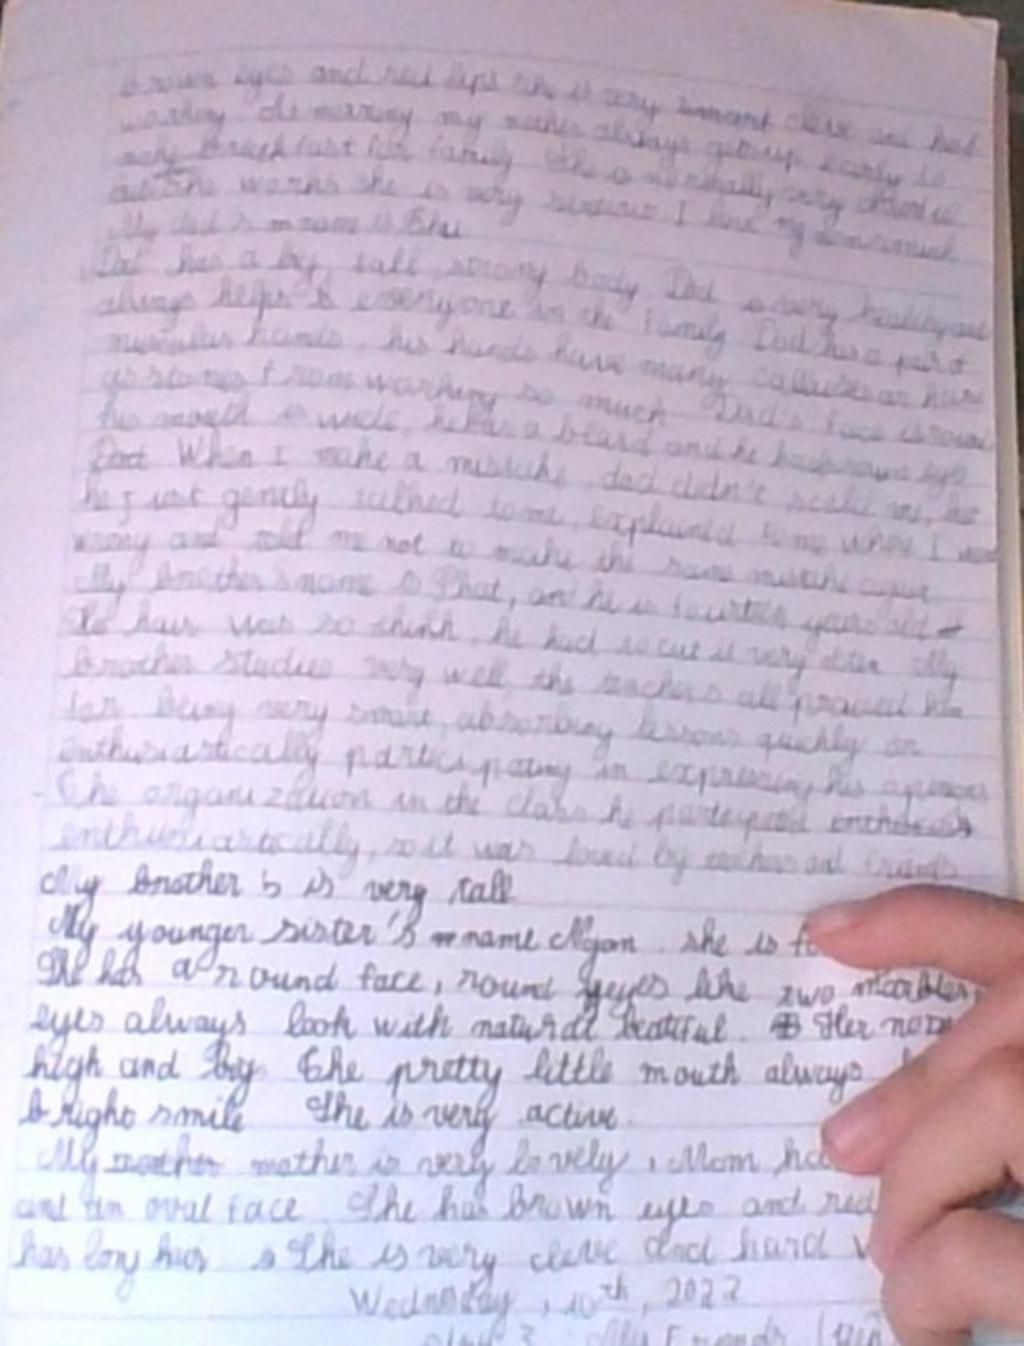 brown eyes and red lips she is very smart clever and hard
working At morning my mother always gets up early to
make breakfast for family She is normally very cheerful
She works she is very serious I love my mom so much
My dad's name is
Dad has a big, tall, strong body Dad is very healthy and
always helps everyone in the family Dad has a pair of
muscular hands, his hands have many calluses as hard
as stones from working so much Dad's face is round
his mouth is wide, he has a beard and he has brown eyes
When I make a mistake, dad didn't scold me, he
just gently talked to me, explained to me where I was
wrong and told me not to make the same mistake again
My brother's name is Phat, and he is fourteen years old
hair was so think, he had to cut it very often My
brother studies very well, the teachers all praised him
for being very smart, absorbing lessons quickly an
enthusiastically participating in expressing his opinions
The organization in the class he participed
enthusiastically, so it was loved by teachers and friends
My brother is very tall
My younger sister's name Ngan she is
She has a round face, round eyes like two marbles,
eyes always look with natural beatiful. Her nose
high and big. The pretty little mouth always
bright smile She is very active.
My mother is very lovely, Mom
and an oval face She has brown eyes and red
has long hair She is very and hard
Wednesday, 10th, 2022
My Friends